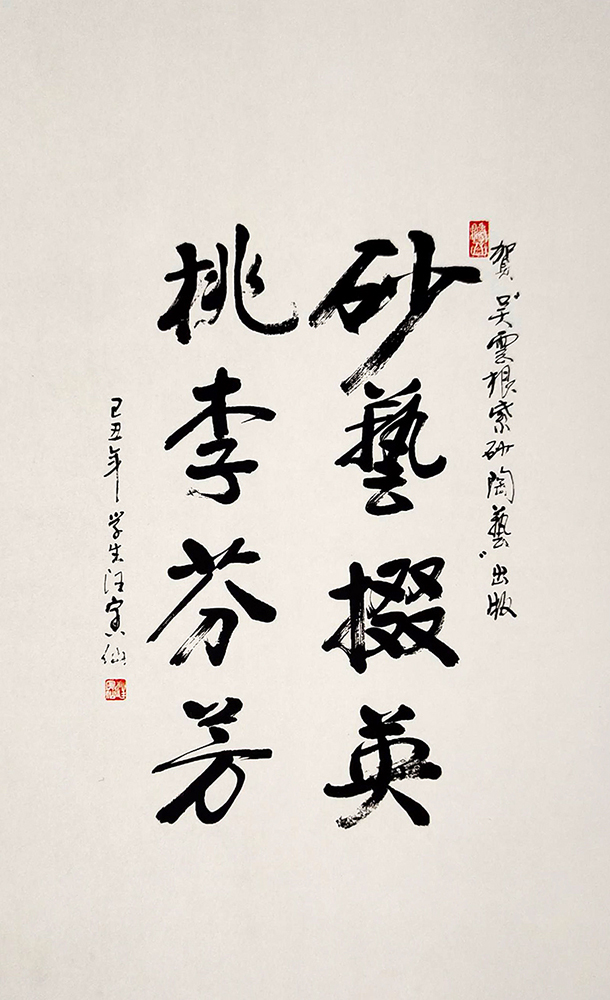 贺“吴雲根紫砂陶藝”出版
砂藝掇英
桃李芬芳
己丑年 学生汪寅仙